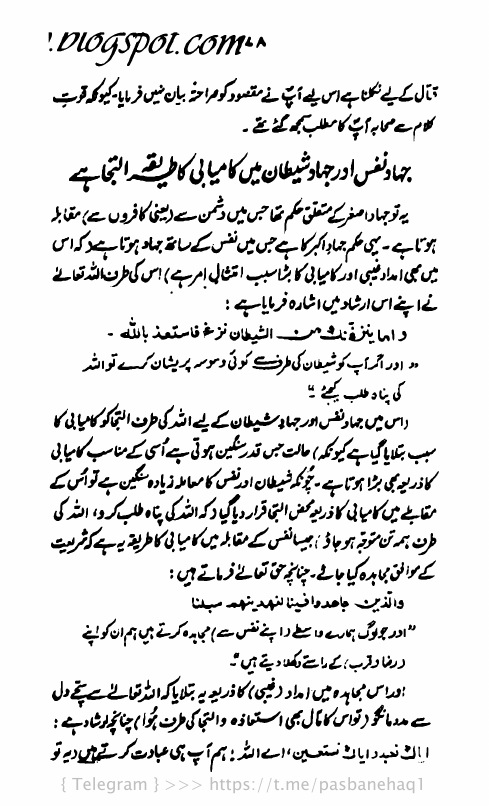 1.blogspot.com ۴۸
قتال کے لیے نکلنا ہے اس لیے آپؐ نے مقصود کو صراحتہً بیان نہیں فرمایا۔ کیونکہ قوتِ
کلام سے صحابہ آپؐ کا مطلب سمجھ گئے تھے۔
جہادِ نفس اور جہادِ شیطان میں کامیابی کا طریقہ التجا ہے
یہ تو جہادِ اصغر کے متعلق حکم تھا جس میں دشمن سے (یعنی کافروں سے) مقابلہ
ہوتا ہے۔ یہی حکم جہادِ اکبر کا ہے جس میں نفس کے ساتھ جہاد ہوتا ہے (کہ اس
میں بھی امدادِ غیبی اور کامیابی کا بڑا سبب امتثالِ امر ہے) اس کی طرف اللہ تعالےٰ
نے اپنے اس ارشاد میں اشارہ فرمایا ہے :
و اما ینزغنک من الشیطان نزغ فاستعذ باللہ ۔
" اور اگر آپ کو شیطان کی طرف سے کوئی وسوسہ پریشان کرے تو اللہ
کی پناہ طلب کیجئے "
(اس میں جہادِ نفس اور جہادِ شیطان کے لیے اللہ کی طرف التجا کو کامیابی کا
سبب بتلایا گیا ہے کیونکہ) حالت جس قدر سنگین ہوتی ہے اُسی کے مناسب کامیابی
کا ذریعہ بھی بڑا ہوتا ہے۔ چونکہ شیطان اور نفس کا معاملہ زیادہ سنگین ہے تو اُس کے
مقابلے میں کامیابی کا ذریعہ محض التجا قرار دیا گیا (کہ اللہ کی پناہ طلب کرو، اللہ کی
طرف ہمہ تن متوجہ ہو جاؤ) جیسا نفس کے مقابلہ میں کامیابی کا طریقہ یہ ہے کہ شریعت
کے موافق مجاہدہ کیا جائے۔ چنانچہ حق تعالےٰ فرماتے ہیں :
والذین جاهدوا فینا لنهدینهم سبلنا
" اور جو لوگ ہمارے واسطے (اپنے نفس سے) مجاہدہ کرتے ہیں ہم ان کو اپنے
(رضا و قرب) کے راستے دکھلا دیتے ہیں "۔
اور اس مجاہدہ میں امداد (غیبی) کا ذریعہ یہ بتلایا کہ اللہ تعالےٰ سے سچے دل
سے مدد مانگو (تو اس کا مآل بھی استعاذہ و التجا کی طرف ہُوا) چنانچہ ارشاد ہے :
ایاک نعبد و ایاک نستعین، اے اللہ ! ہم آپ ہی عبادت کرتے ہیں (یہ تو
{ Telegram } >>> https://t.me/pasbanehaq1